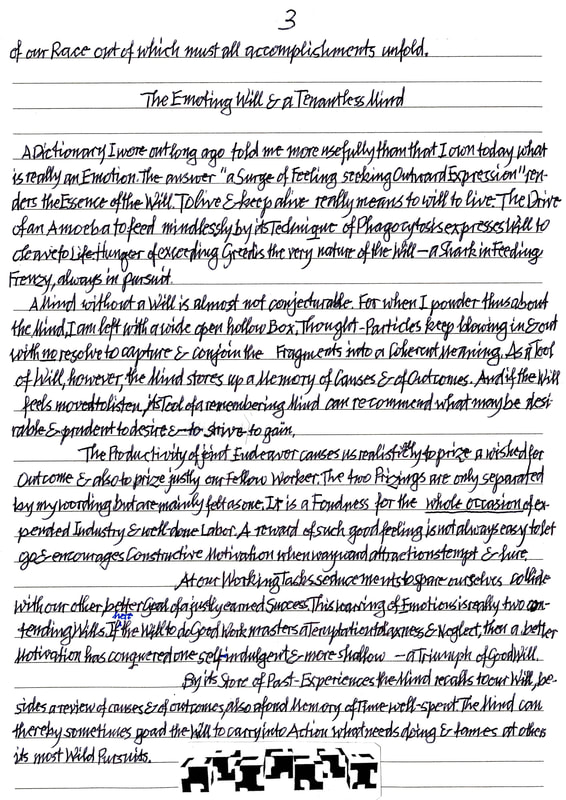 3
of our Race out of which must all accomplishments unfold.
The Emoting Will & a Tenantless Mind
A Dictionary I wore out long ago told me more usefully than that I own today what
is really an Emotion. The answer "a Surge of Feeling seeking Outward Expression" ren-
ders the Essence of the Will. To live & keep alive really means to will to live. The Drive
of an Amoeba to feed mindlessly by its Technique of Phagocytosis expresses Will to
cleave to Life. Hunger of exceeding Greed is the very nature of the Will — a Shark in Feeding
Frenzy, always in pursuit.
A Mind without a Will is almost not conjecturable. For when I ponder thus about
the Mind, I am left with a wide open hollow Box. Thought-Particles keep blowing in & out
with no resolve to capture & conjoin the Fragments into a Coherent Meaning. As a Tool
of Will, however, the Mind stores up a Memory of Causes & of Outcomes. And if the Will
feels moved to listen, its Tool of a remembering Mind can recommend what may be desi-
rable & prudent to desire & — to strive — to gain.
The Productivity of joint Endeavor causes us realistically to prize a wished for
Outcome & also to prize justly our Fellow Worker. The two Prizings are only separated
by my wording but are mainly felt as one. It is a Fondness for the whole occasion of ex-
pended Industry & well-done Labor. A reward of such good feeling is not always easy to let
go & encourages Constructive Motivation when wayward attractions tempt & lure.
At our Working Tasks seducements to spare ourselves collide
with our other better Goal of a justly earned Success. This warring of Emotions is really two con-
tending Wills. If the Will to do Good Work masters a Temptation to laxness & Neglect, then a better
Motivation has conquered one self-indulgent & more shallow — a Triumph of Good Will.
By its Store of Past-Experiences the Mind recalls to our Will, be-
sides a review of causes & of outcomes, also a fond Memory of Time well-spent. The Mind can
thereby sometimes goad the Will to carry into Action what needs doing & tames at others
its most Wild Pursuits.